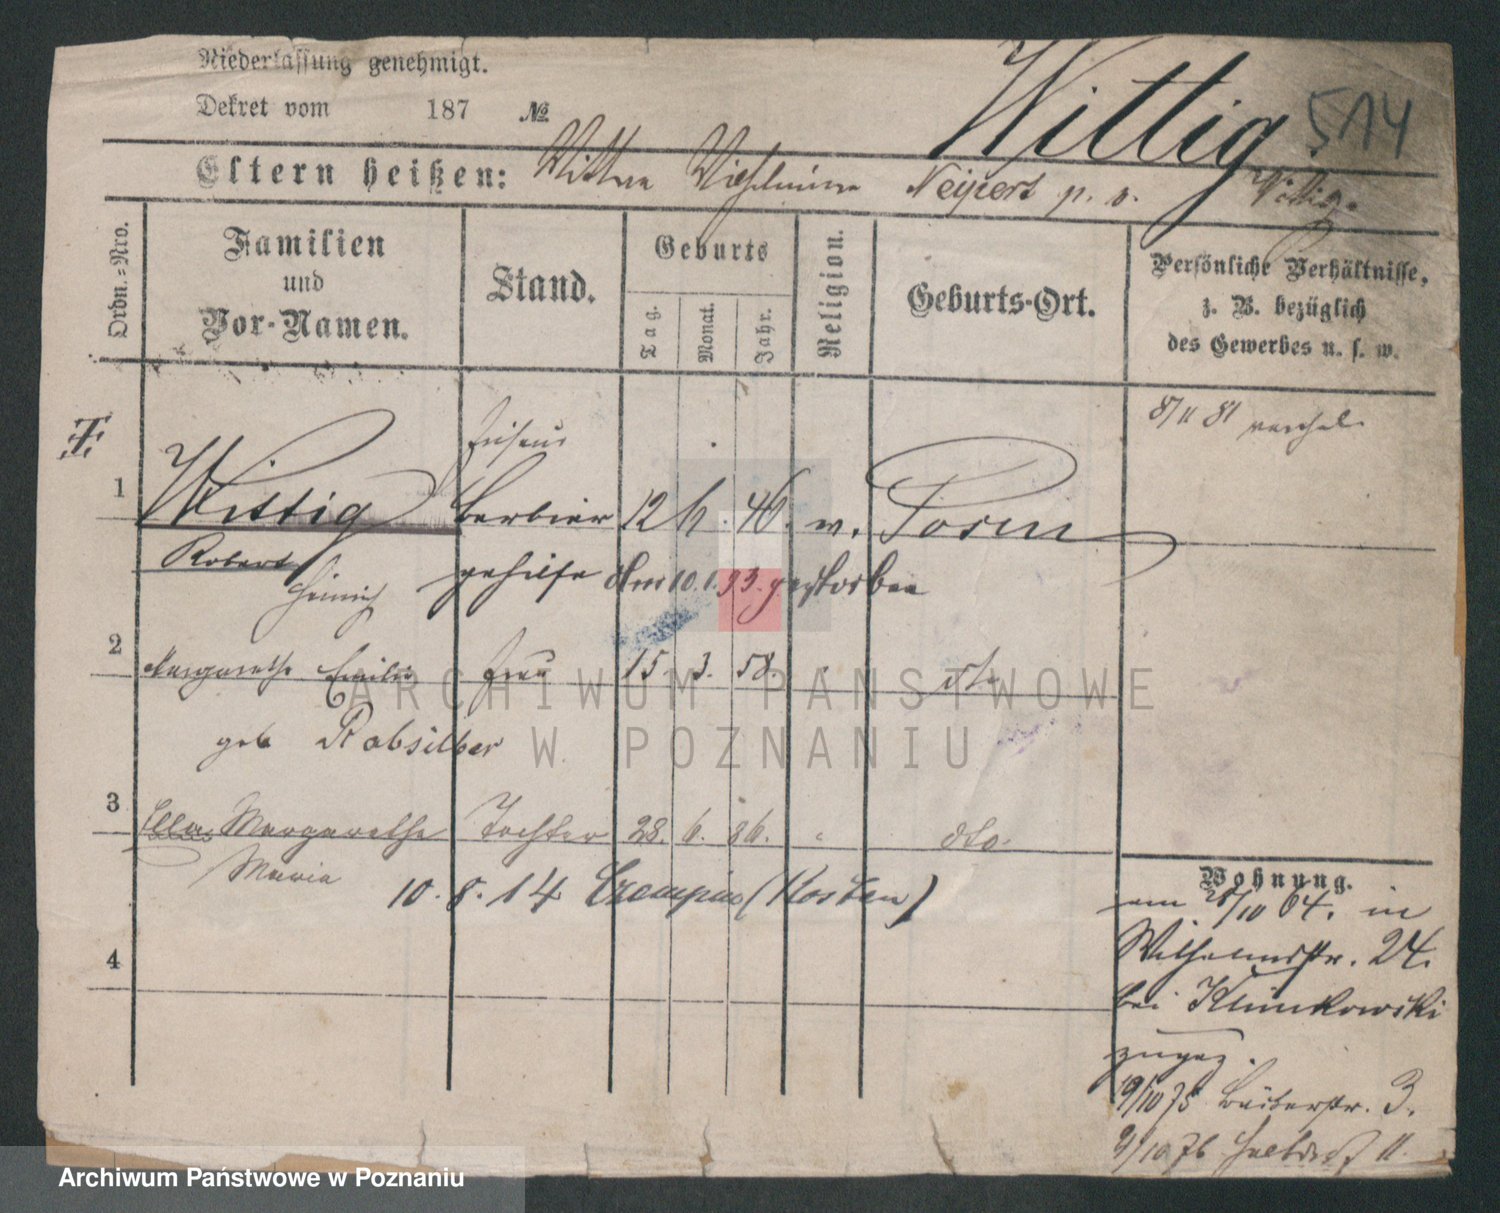 Niederlassung genehmigt.
Dekret vom 187 №
Wittig 514
Eltern heißen: Wittwe Wilhelmine Neypert p. v. Wittig.
Ordn.=Nro.
Familien
und
Vor-Namen.
Stand.
Geburts
Tag.
Monat.
Jahr.
Religion.
Geburts-Ort.
Persönliche Verhältnisse,
z. B. bezüglich
des Gewerbes u. s. w.
Friseur
1 Wittig Barbier 12 6. 46. w. Posen
Robert gehilfe Am 10.1.93. gestorben
Heinrich
2 Margarethe Emilie Frau 15. 3. 58. dto
geb Rabsilber
3 Ella Margarethe Tochter 28. 6. 86. dto.
Maria
10. 8. 14 Czempin (Kosten)
4
Wohnung.
am /10 64. in
Wilhelmstr. 24.
bei Klimkowski
zugez.
19/10 75 Büttelstr. 3.
/10 76 Halbdorfstr 11.
ARCHIWUM PAŃSTWOWE
W POZNANIU
Archiwum Państwowe w Poznaniu